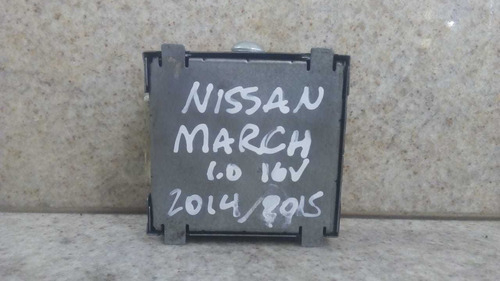 NISSAN
MARCH
1.0 16V
2014/2015